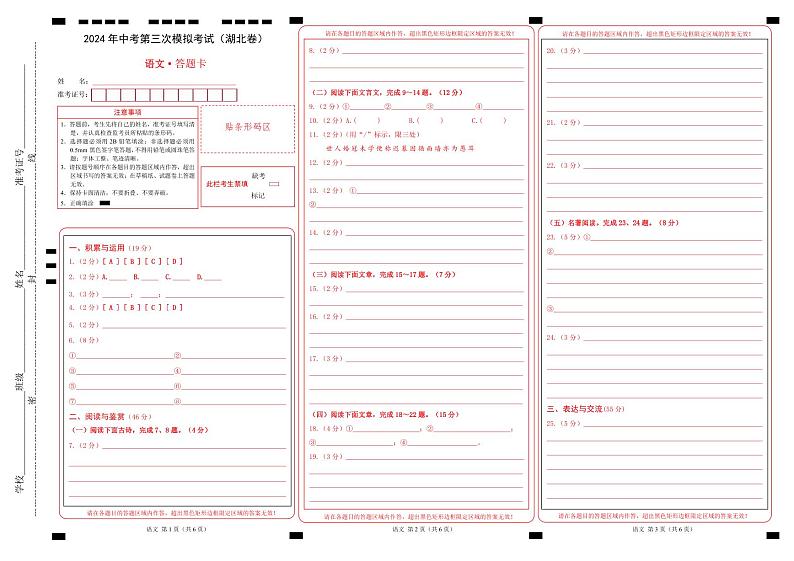 2024 年中考第三次模拟考试（湖北卷）
语文·答题卡
姓　名：
准考证号：
注意事项
1．答题前，考生先将自己的姓名，准考证号填写清楚，并认真检查监考员所粘贴的条形码。
2．选择题必须用 2B 铅笔填涂；非选择题必须用 0.5mm 黑色签字笔答题，不得用铅笔或圆珠笔答题；字体工整、笔迹清晰。
3．请按题号顺序在各题目的答题区域内作答，超出区域书写的答案无效；在草稿纸、试题卷上答题无效。
4．保持卡面清洁，不要折叠、不要弄破。
5．正确填涂
贴条形码区
此栏考生禁填
缺考
标记
学校
班级
姓名
准考证号
密
封
线
一、积累与运用（19 分）
1.（2 分）[ A ] [ B ] [ C ] [ D ]
2.（2 分）A.____ B.____ C.____ D.____
3.（3 分）________；________；________
4.（2 分）[ A ] [ B ] [ C ] [ D ]
5.（2 分）
6.（8 分）
① ②
③ ④
⑤ ⑥
⑦ ⑧
二、阅读与鉴赏（46 分）
（一）阅读下面古诗，完成 7、8 题。（4 分）
7.（2 分）
请在各题目的答题区域内作答，超出黑色矩形边框限定区域的答案无效！
语文 第 1 页（共 6 页）
请在各题目的答题区域内作答，超出黑色矩形边框限定区域的答案无效！
8.（2 分）
（二）阅读下面文言文，完成 9～14 题。（12 分）
9.（2 分）① ② ③ ④
10.（2 分）A.（　） B.（　） C.（　）
11.（2 分）（用“/”标示，限三处）
世人婚冠未学便称迟暮因循面墙亦为愚耳
12.（2 分）
13.（2 分）①
②
14.（2 分）
（三）阅读下面文章，完成 15～17 题。（7 分）
15.（2 分）
16.（2 分）
17.（3 分）
（四）阅读下面文章，完成 18～22 题。（15 分）
18.（4 分）①；②；
③；④.
19.（3 分）
请在各题目的答题区域内作答，超出黑色矩形边框限定区域的答案无效！
语文 第 2 页（共 6 页）
请在各题目的答题区域内作答，超出黑色矩形边框限定区域的答案无效！
20.（3 分）
21.（2 分）
22.（3 分）
（五）名著阅读，完成 23、24 题。（8 分）
23.（5 分）①
②
24.（3 分）
三、表达与交流(55 分)
25.（5 分）
请在各题目的答题区域内作答，超出黑色矩形边框限定区域的答案无效！
语文 第 3 页（共 6 页）